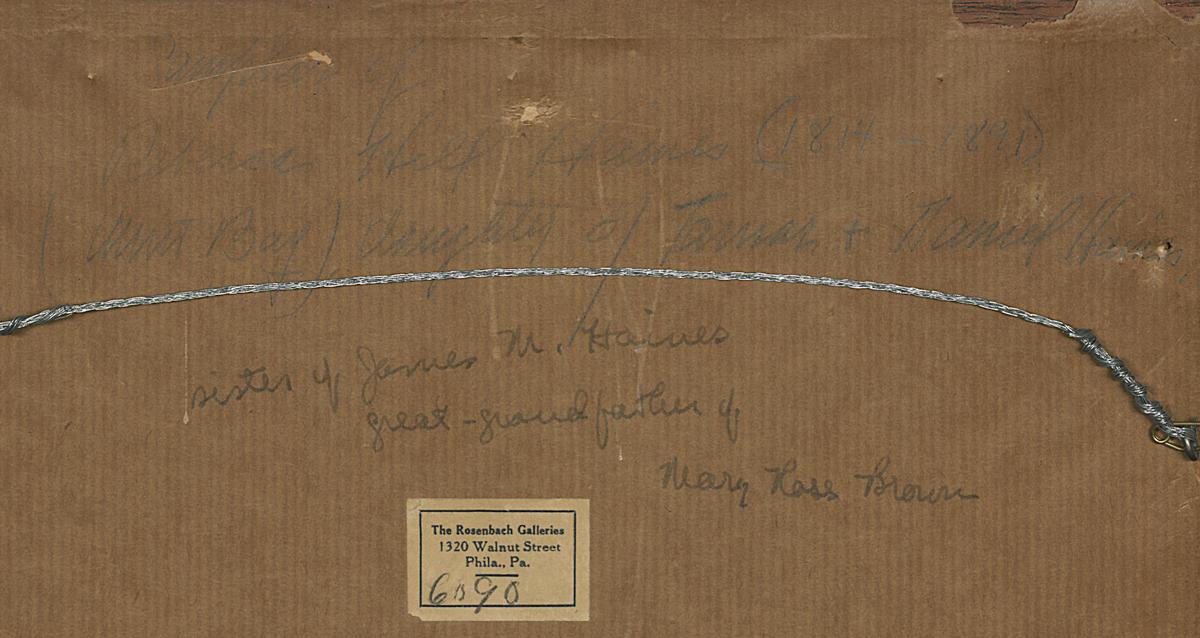 Sampler of
Rebecca Holt Haines (1814 – 1891)
(Aunt Bay) daughter of Tamar + Daniel Haines,
sister of James M. Haines
great-grandfather of
Mary Ross Brown
The Rosenbach Galleries
1320 Walnut Street
Phila., Pa.